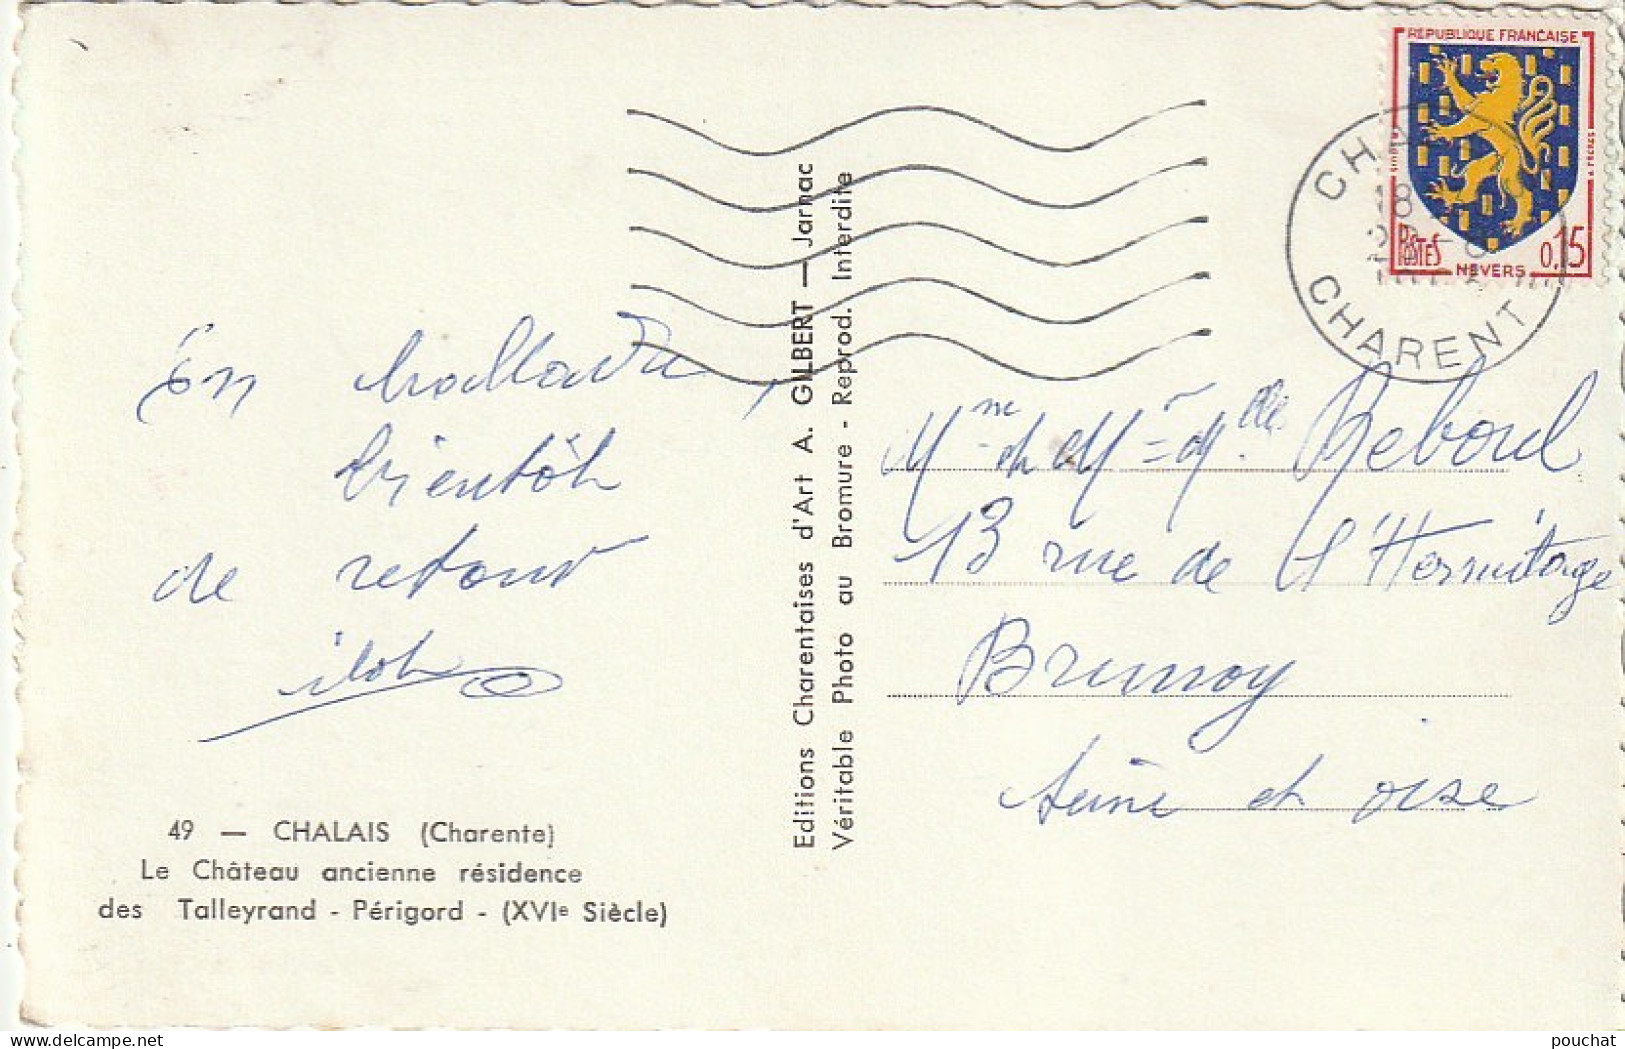 RÉPUBLIQUE FRANÇAISE
POSTES
0,15
NEVERS
CHA
18
CHARENT
En
bientôt
de retour
49 — CHALAIS (Charente)
Le Château ancienne résidence
des Talleyrand - Périgord - (XVIe Siècle)
Editions Charentaises d'Art A. GILBERT — Jarnac
Véritable Photo au Bromure - Reprod. Interdite
Mme et Mr Mlle Reboul
13 rue de l'Hermitage
Brunoy
Seine et oise
pouchat